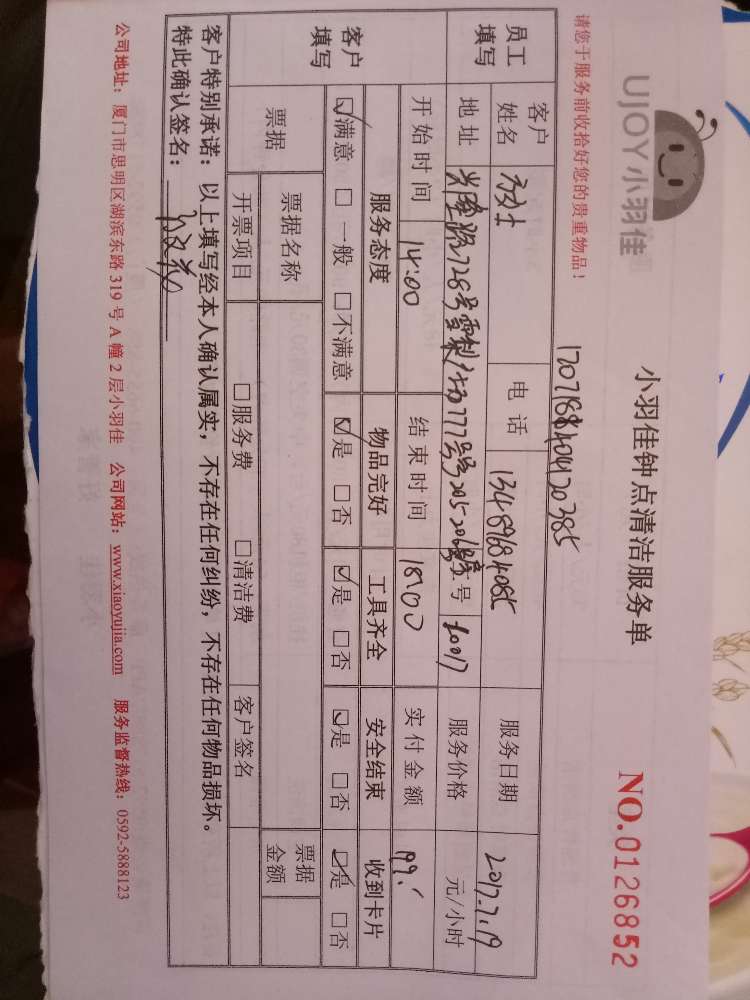 UJOY小羽佳
小羽佳钟点清洁服务单
NO.0126852
请您于服务前收拾好您的贵重物品！
1707188404120385
员工填写
客户姓名
电话
13489684085
服务日期
2017.7.19
地址
728号
777号
205 206
号
服务价格
元/小时
开始时间
14:00
结束时间
18:00
实付金额
199.
客户填写
服务态度
物品完好
工具齐全
安全结束
收到卡片
☑满意 □一般 □不满意
☑是 □否
☑是 □否
☑是 □否
☑是 □否
票据
票据名称
票据金额
开票项目
□服务费 □清洁费
客户签名
客户特别承诺：以上填写经本人确认属实，不存在任何纠纷，不存在任何物品损坏。
特此确认签名：
公司地址：厦门市思明区湖滨东路 319 号 A 幢 2 层小羽佳 公司网站：www.xiaoyujia.com 服务监督热线：0592-5888123